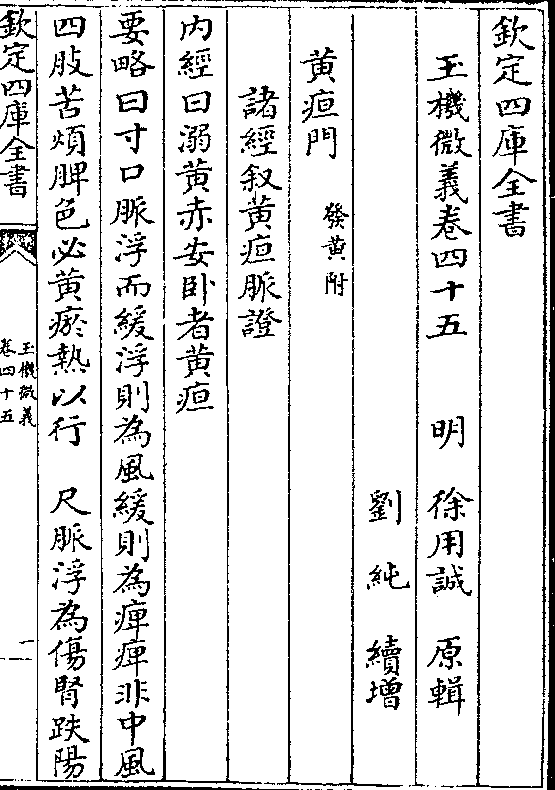 欽定四庫全書
玉機微義卷四十五　　明　徐用誠　原輯
劉純　續增
黃疸門　發黃附
諸經叙黃疸脈證
内經曰溺黃赤安卧者黃疸
要略曰寸口脈浮而緩浮則為風緩則為痺痺非中風
四肢苦煩脾色必黃瘀熱以行　尺脈浮為傷腎趺陽
欽定四庫全書
玉機微義
卷四十五
一